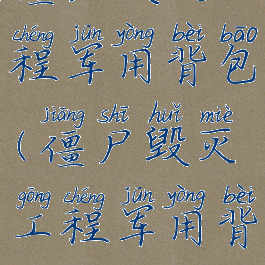 chéng jūn yòng bèi bāo
程军用背包
jiāng shī huǐ miè
(僵尸毁灭
gōng chéng jūn yòng bèi
工程军用背